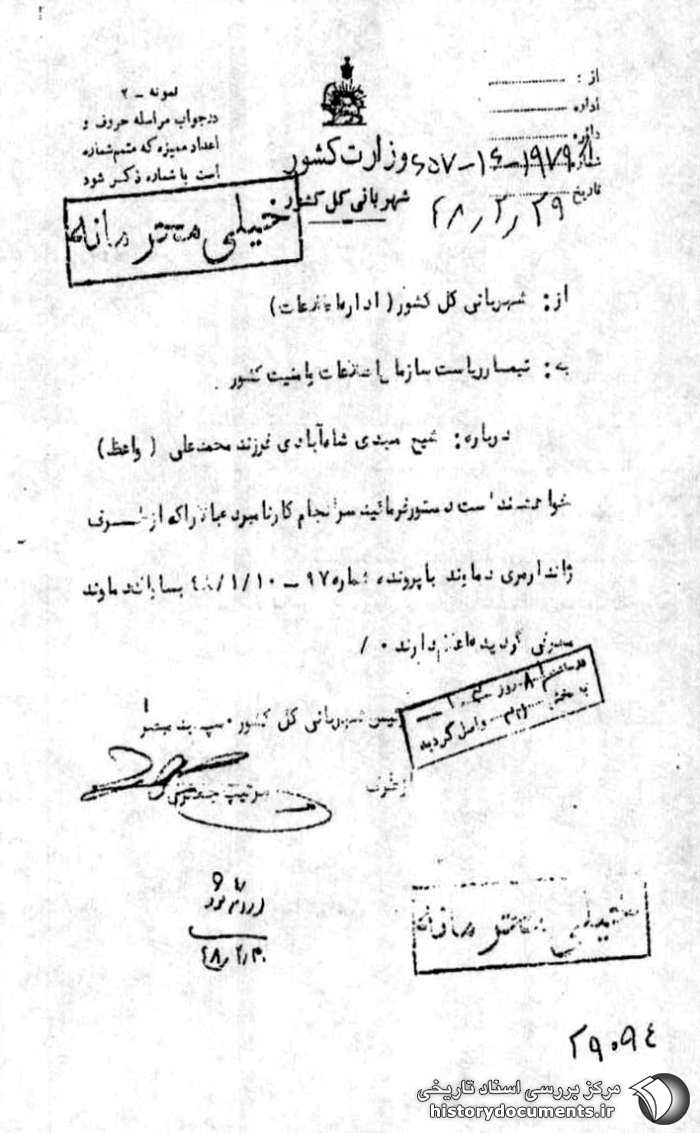 نمونه - ۲
در جواب مراسله حروف و
اعداد ممیزه که متمم شماره
است با شماره ذکر شود
از :
اداره
دایره
شماره ۱۹۷۹۸-۱۴-۵۵۷
تاریخ ۴۸/۲/۲۹
وزارت کشور
شهربانی کل کشور
خیلی محرمانه
از : شهربانی کل کشور ( اداره اطلاعات )
به : تیمسار ریاست سازمان اطلاعات و امنیت کشور
درباره : شیخ مهدی شاه‌آبادی فرزند محمدعلی ( واعظ )
خواهشمند است دستور فرمائید سرانجام کار نامبرده بالا را که از طرف
ژاندارمری دماوند با پرونده شماره ۹۷ - ۴۸/۱/۱۰ بساواک دماوند
معرفی گردیده اعلام دارند ۰ /
در ساعت ۸ روز
به بخش ۳۲۱ واصل گردید
رئیس شهربانی کل کشور سپهبد مبصر
از طرف
سرتیپ
۴۸/۲/۳۰
خیلی محرمانه
۲۹۰۹۴
مرکز بررسی اسناد تاریخی
historydocuments.ir